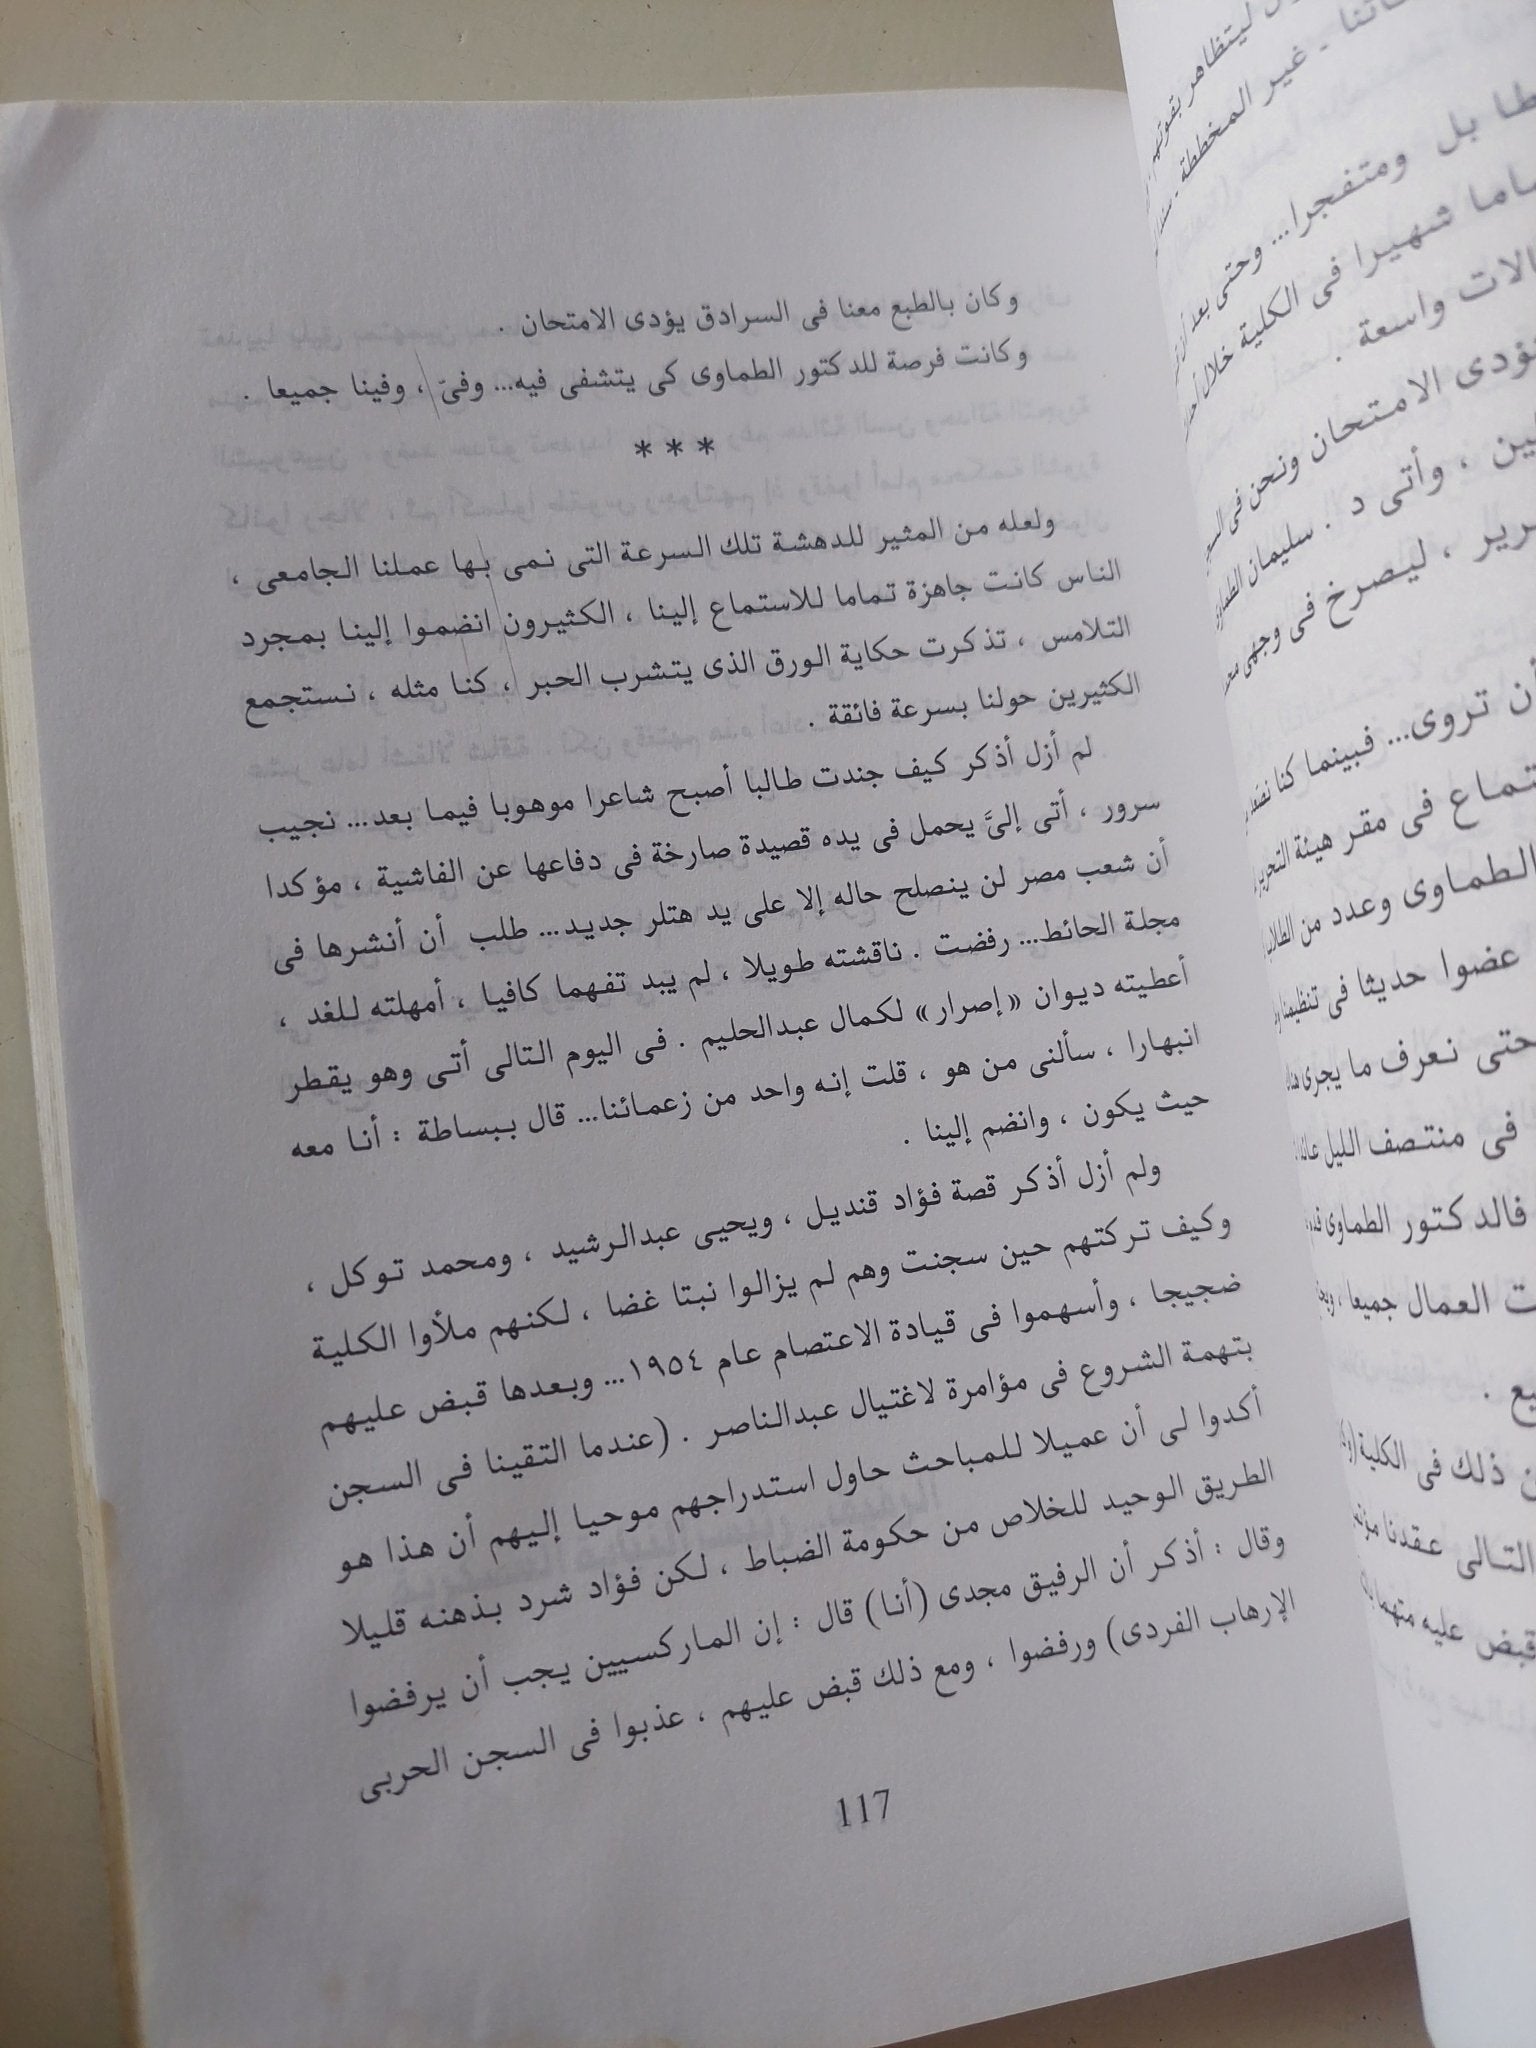 وكان بالطبع معنا فى السرادق يؤدى الامتحان .
وكانت فرصة للدكتور الطماوى كى يتشفى فيه... وفىّ ، وفينا جميعا .
***
ولعله من المثير للدهشة تلك السرعة التى نمى بها عملنا الجامعى ،
الناس كانت جاهزة تماما للاستماع إلينا ، الكثيرون انضموا إلينا بمجرد
التلامس ، تذكرت حكاية الورق الذى يتشرب الحبر ، كنا مثله ، نستجمع
الكثيرين حولنا بسرعة فائقة .
لم أزل أذكر كيف جندت طالبا أصبح شاعرا موهوبا فيما بعد... نجيب
سرور ، أتى إلىَّ يحمل فى يده قصيدة صارخة فى دفاعها عن الفاشية ، مؤكدا
أن شعب مصر لن ينصلح حاله إلا على يد هتلر جديد... طلب أن أنشرها فى
مجلة الحائط... رفضت . ناقشته طويلا ، لم يبد تفهما كافيا ، أمهلته للغد ،
أعطيته ديوان «إصرار» لكمال عبدالحليم . فى اليوم التالى أتى وهو يقطر
انبهارا ، سألنى من هو ، قلت إنه واحد من زعمائنا... قال ببساطة : أنا معه
حيث يكون ، وانضم إلينا .
ولم أزل أذكر قصة فؤاد قنديل ، ويحيى عبدالرشيد ، ومحمد توكل ،
وكيف تركتهم حين سجنت وهم لم يزالوا نبتا غضا ، لكنهم ملأوا الكلية
ضجيجا ، وأسهموا فى قيادة الاعتصام عام ١٩٥٤... وبعدها قبض عليهم
بتهمة الشروع فى مؤامرة لاغتيال عبدالناصر . (عندما التقينا فى السجن
أكدوا لى أن عميلا للمباحث حاول استدراجهم موحيا إليهم أن هذا هو
الطريق الوحيد للخلاص من حكومة الضباط ، لكن فؤاد شرد بذهنه قليلا
وقال : أذكر أن الرفيق مجدى (أنا) قال : إن الماركسيين يجب أن يرفضوا
الإرهاب الفردى) ورفضوا ، ومع ذلك قبض عليهم ، عذبوا فى السجن الحربى
117
ليتظاهر بقوتهم
غير المخططة
بل ومتفجرا... وحتى بعد
شهيرا فى الكلية خلال
واسعة .
الامتحان ونحن فى
، وأتى د . سليمان
، ليصرخ فى وجهى
أن تروى... فبينما كنا
فى مقر هيئة التحرير
الطماوى وعدد من
حديثا فى تنظيمنا
حتى نعرف ما يجرى
فى منتصف الليل
فالدكتور الطماوى
العمال جميعا ،
ذلك فى الكلية
التالى عقدنا
قبض عليه متهما